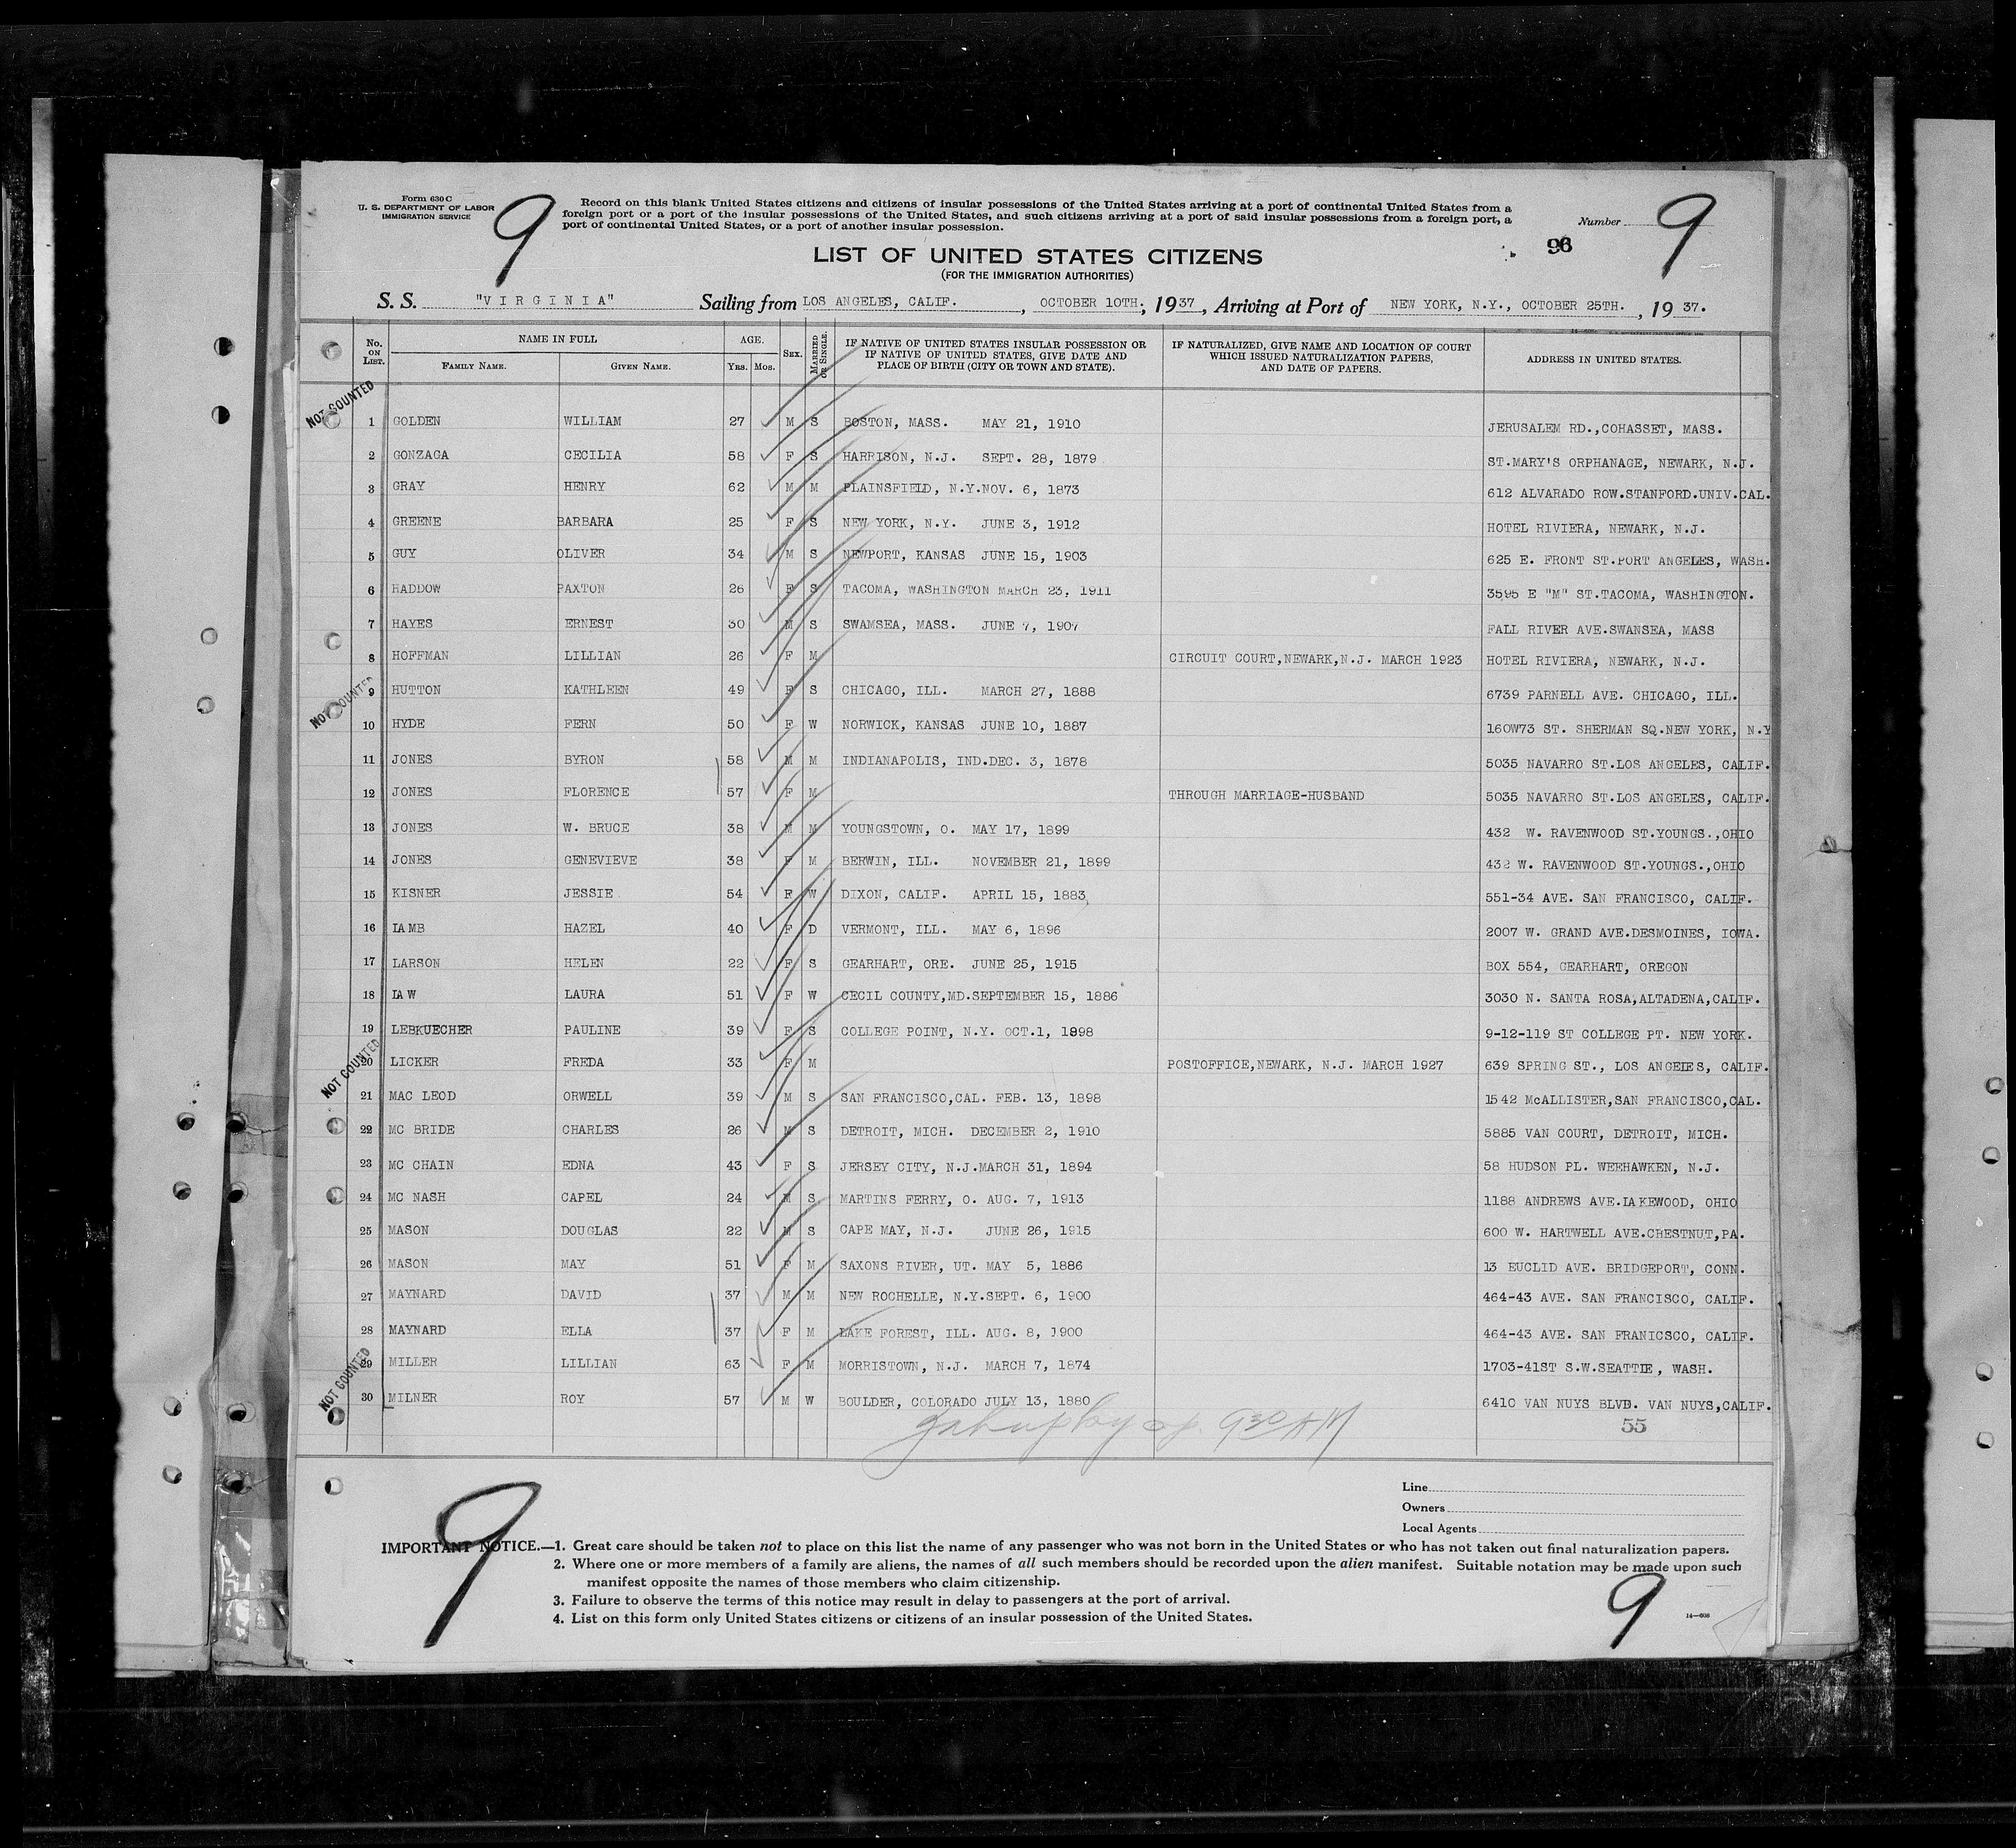 Form 630 C
U. S. DEPARTMENT OF LABOR
IMMIGRATION SERVICE
9
Record on this blank United States citizens and citizens of insular possessions of the United States arriving at a port of continental United States from a
foreign port or a port of the insular possessions of the United States, and such citizens arriving at a port of said insular possessions from a foreign port, a
port of continental United States, or a port of another insular possession.
Number 9
96
LIST OF UNITED STATES CITIZENS
(FOR THE IMMIGRATION AUTHORITIES)
S. S. "VIRGINIA" Sailing from LOS ANGELES, CALIF. , OCTOBER 10TH; 1937, Arriving at Port of NEW YORK, N.Y., OCTOBER 25TH. , 19 37.
No. ON LIST. NAME IN FULL FAMILY NAME. GIVEN NAME. AGE. YRS. MOS. SEX. MARRIED OR SINGLE. IF NATIVE OF UNITED STATES INSULAR POSSESSION OR IF NATIVE OF UNITED STATES, GIVE DATE AND PLACE OF BIRTH (CITY OR TOWN AND STATE). IF NATURALIZED, GIVE NAME AND LOCATION OF COURT WHICH ISSUED NATURALIZATION PAPERS, AND DATE OF PAPERS. ADDRESS IN UNITED STATES.
NOT COUNTED
1 GOLDEN WILLIAM 27 M S BOSTON, MASS. MAY 21, 1910 JERUSALEM RD.,COHASSET, MASS.
2 GONZAGA CECILIA 58 F S HARRISON, N.J. SEPT. 28, 1879 ST.MARY'S ORPHANAGE, NEWARK, N.J.
3 GRAY HENRY 62 M M PLAINSFIELD, N.Y.NOV. 6, 1873 612 ALVARADO ROW.STANFORD.UNIV.CAL.
4 GREENE BARBARA 25 F S NEW YORK, N.Y. JUNE 3, 1912 HOTEL RIVIERA, NEWARK, N.J.
5 GUY OLIVER 34 M S NEWPORT, KANSAS JUNE 15, 1903 625 E. FRONT ST.PORT ANGELES, WASH.
6 HADDOW PAXTON 26 F S TACOMA, WASHINGTON MARCH 23, 1911 3595 E "M" ST.TACOMA, WASHINGTON.
7 HAYES ERNEST 30 M S SWAMSEA, MASS. JUNE 7, 1907 FALL RIVER AVE.SWANSEA, MASS
8 HOFFMAN LILLIAN 26 F M CIRCUIT COURT,NEWARK,N.J. MARCH 1923 HOTEL RIVIERA, NEWARK, N.J.
NOT COUNTED
9 HUTTON KATHLEEN 49 F S CHICAGO, ILL. MARCH 27, 1888 6739 PARNELL AVE. CHICAGO, ILL.
10 HYDE FERN 50 F W NORWICK, KANSAS JUNE 10, 1887 160W73 ST. SHERMAN SQ.NEW YORK, N.Y
11 JONES BYRON 58 M M INDIANAPOLIS, IND.DEC. 3, 1878 5035 NAVARRO ST.LOS ANGELES, CALIF.
12 JONES FLORENCE 57 F M THROUGH MARRIAGE-HUSBAND 5035 NAVARRO ST.LOS ANGELES, CALIF.
13 JONES W. BRUCE 38 M M YOUNGSTOWN, O. MAY 17, 1899 432 W. RAVENWOOD ST.YOUNGS.,OHIO
14 JONES GENEVIEVE 38 F M BERWIN, ILL. NOVEMBER 21, 1899 432 W. RAVENWOOD ST.YOUNGS.,OHIO
15 KISNER JESSIE 54 F W DIXON, CALIF. APRIL 15, 1883 551-34 AVE. SAN FRANCISCO, CALIF.
16 LAMB HAZEL 40 F D VERMONT, ILL. MAY 6, 1896 2007 W. GRAND AVE.DESMOINES, IOWA.
17 LARSON HELEN 22 F S GEARHART, ORE. JUNE 25, 1915 BOX 554, GEARHART, OREGON
18 LAW LAURA 51 F W CECIL COUNTY,MD.SEPTEMBER 15, 1886 3030 N. SANTA ROSA,ALTADENA,CALIF.
19 LEBKUECHER PAULINE 39 F S COLLEGE POINT, N.Y. OCT.1, 1898 9-12-119 ST COLLEGE PT. NEW YORK.
NOT COUNTED
20 LICKER FREDA 33 F M POSTOFFICE,NEWARK, N.J. MARCH 1927 639 SPRING ST., LOS ANGELES, CALIF.
21 MAC LEOD ORWELL 39 M S SAN FRANCISCO,CAL. FEB. 13, 1898 1542 McALLISTER,SAN FRANCISCO,CAL.
22 MC BRIDE CHARLES 26 M S DETROIT, MICH. DECEMBER 2, 1910 5885 VAN COURT, DETROIT, MICH.
23 MC CHAIN EDNA 43 F S JERSEY CITY, N.J.MARCH 31, 1894 58 HUDSON PL. WEEHAWKEN, N.J.
24 MC NASH CAPEL 24 M S MARTINS FERRY, O. AUG. 7, 1913 1188 ANDREWS AVE.LAKEWOOD, OHIO
25 MASON DOUGLAS 22 M S CAPE MAY, N.J. JUNE 26, 1915 600 W. HARTWELL AVE.CHESTNUT,PA.
26 MASON MAY 51 F M SAXONS RIVER, UT. MAY 5, 1886 13 EUCLID AVE. BRIDGEPORT, CONN.
27 MAYNARD DAVID 37 M M NEW ROCHELLE, N.Y.SEPT. 6, 1900 464-43 AVE. SAN FRANCISCO, CALIF.
28 MAYNARD ELLA 37 F M LAKE FOREST, ILL. AUG. 8, 1900 464-43 AVE. SAN FRANICSCO, CALIF.
NOT COUNTED
29 MILLER LILLIAN 63 F M MORRISTOWN, N.J. MARCH 7, 1874 1703-41ST S.W.SEATTLE, WASH.
30 MILNER ROY 57 M W BOULDER, COLORADO JULY 13, 1880 6410 VAN NUYS BLVD. VAN NUYS,CALIF.
by 930 AM
55
Line
Owners
Local Agents
9
IMPORTANT NOTICE.—1. Great care should be taken not to place on this list the name of any passenger who was not born in the United States or who has not taken out final naturalization papers.
2. Where one or more members of a family are aliens, the names of all such members should be recorded upon the alien manifest. Suitable notation may be made upon such
manifest opposite the names of those members who claim citizenship.
3. Failure to observe the terms of this notice may result in delay to passengers at the port of arrival.
4. List on this form only United States citizens or citizens of an insular possession of the United States.
9
14—608